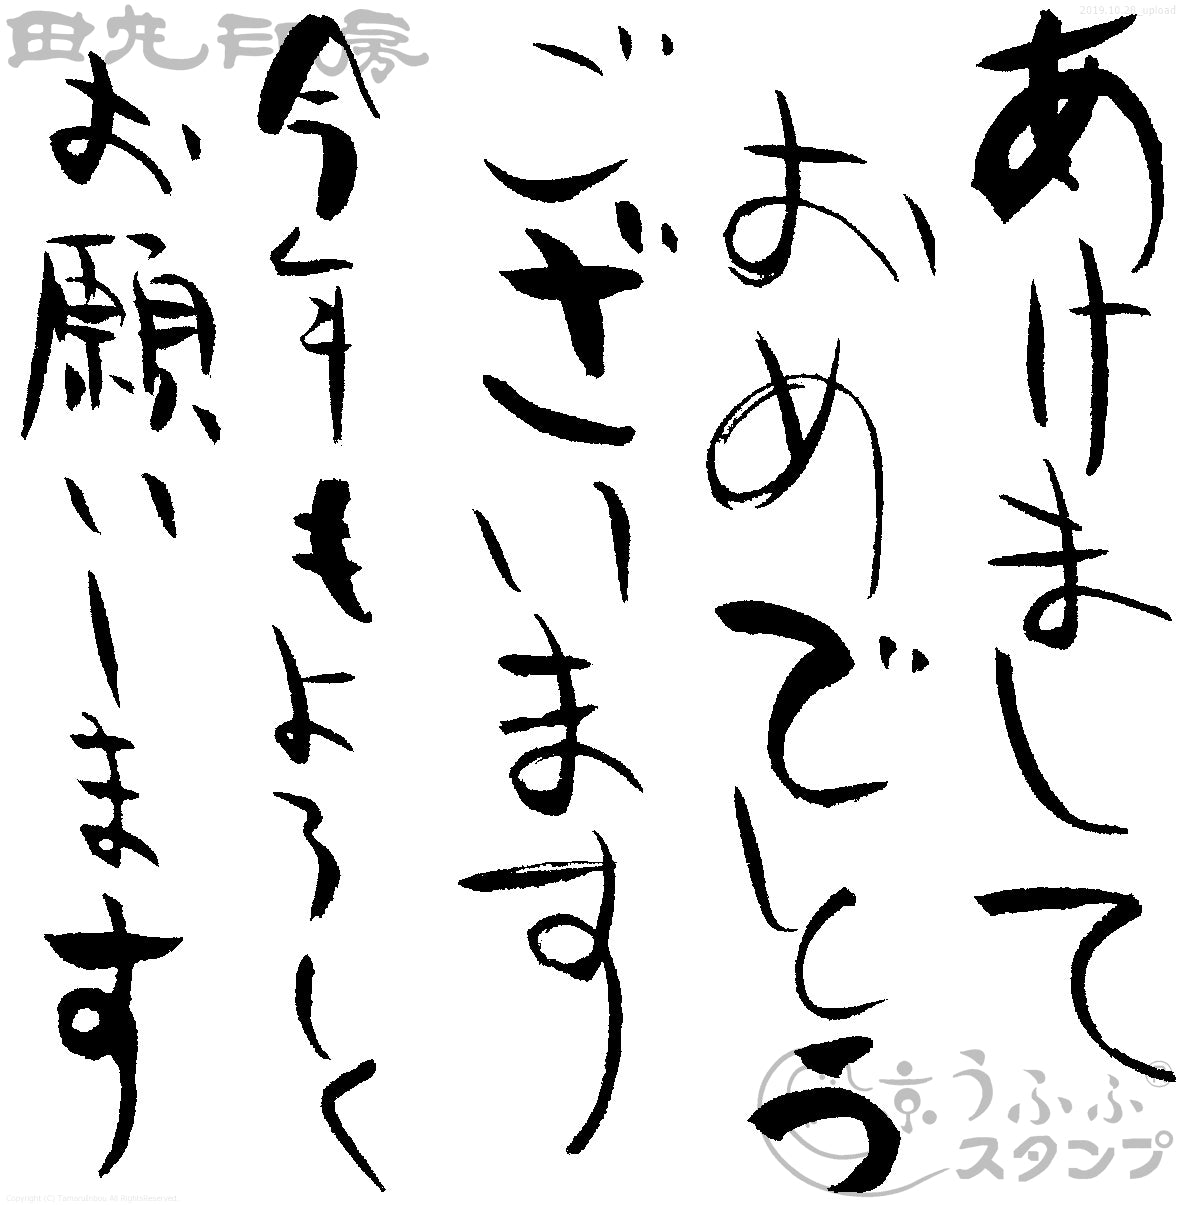 あけまして
おめでとう
ございます
今年もよろしく
お願いします
田丸印房
京うふふ®
スタンプ
2019.10.26_upload
Copyright (C) TamaruInbou All RightsReserved.